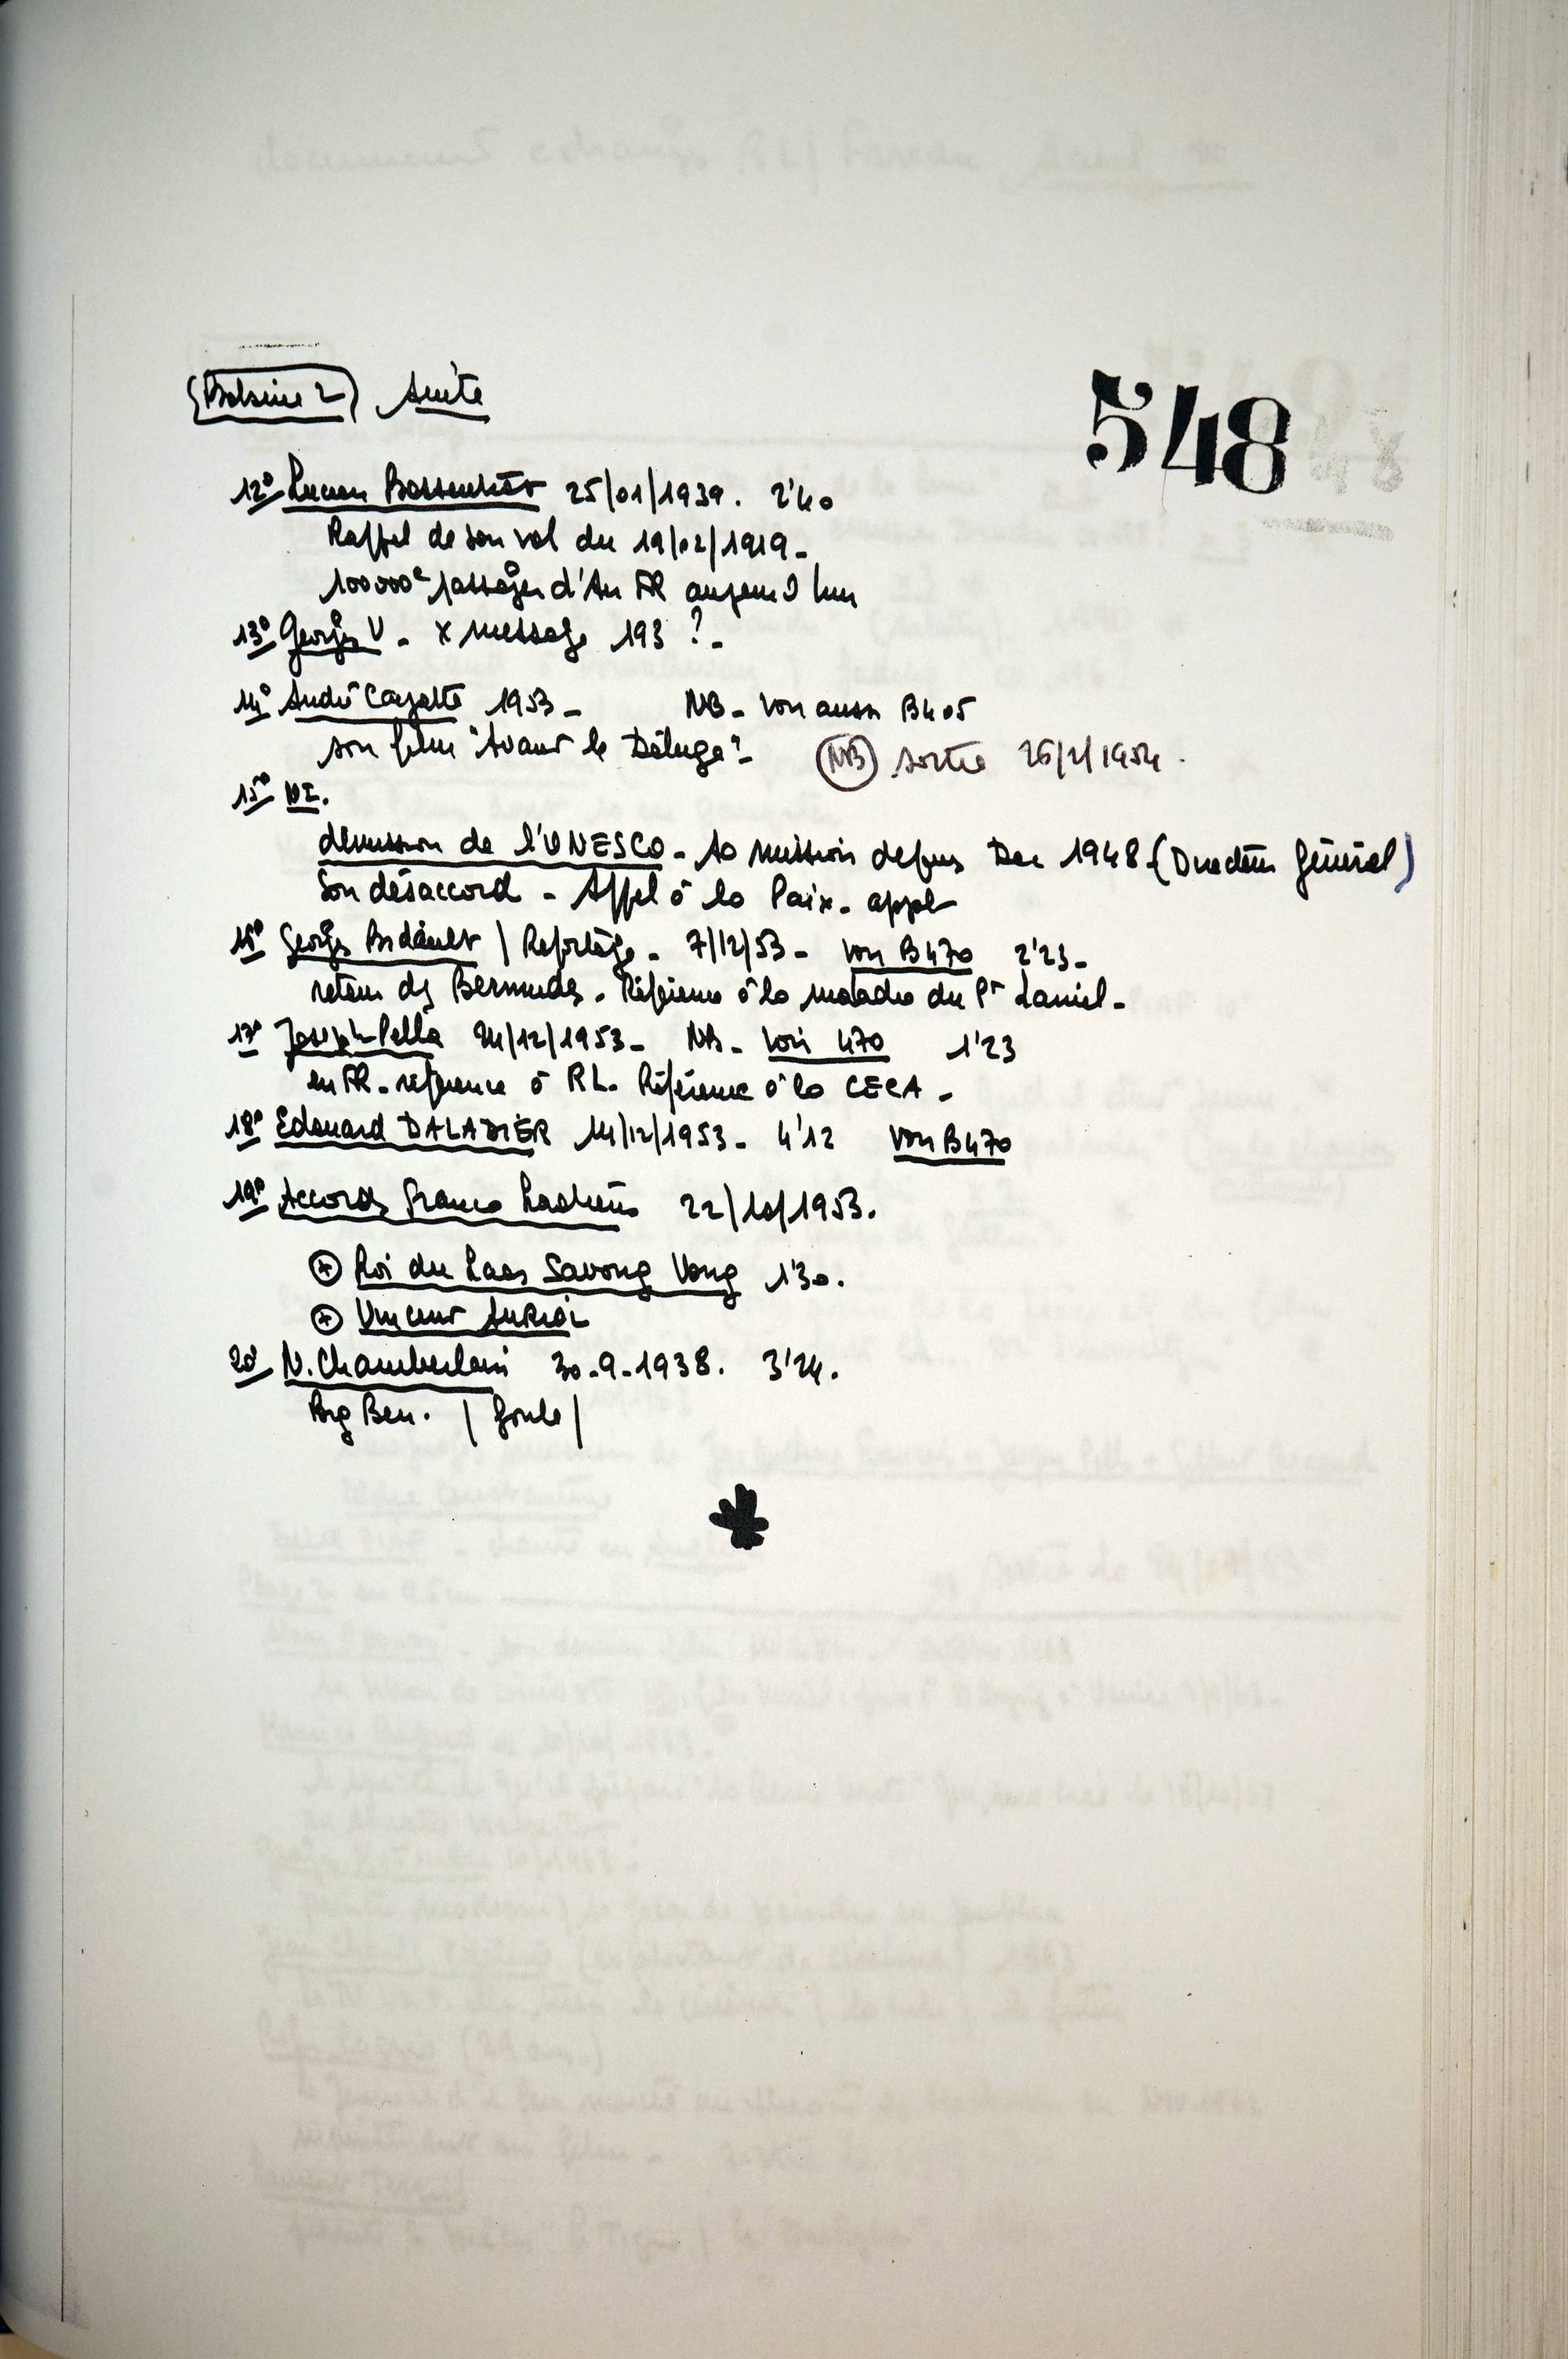 (Bobine 2) suite
548
12° Lucien Bossoutrot 25/01/1939. 2'40
Rappel de son vol du 19/02/1919-
100000e passager d'Air FR aujourd'hui
13° Georges V - x message 193 ?-
14° André Cayatte 1953- NB- Voir aussi B405
son film "Avant le Déluge"- (NB) sortie 26/2/1954.
15° NI.
démission de l'UNESCO- sa mission depuis Dec 1948 (Directeur Général)
Son désaccord - Appel à la Paix- appl
16° Georges Bidault / Reportage- 7/12/53- Voir B470 2'23-
retour des Bermudes. Référence à la maladie du Pt Laniel-
17° Joseph Pella 24/12/1953- NB- Voir 470 1'23
en FR- référence à RL. Référence à la CECA-
18° Edouard DALADIER 14/12/1953- 4'12 Voir B470
19° Accords Franco Laotiens 22/10/1953.
+ Roi du Laos Savong Vong 1'30.
+ Vincent AURIOL
20° N. Chamberlain 30-9-1938. 3'24.
Big Ben. / foule /